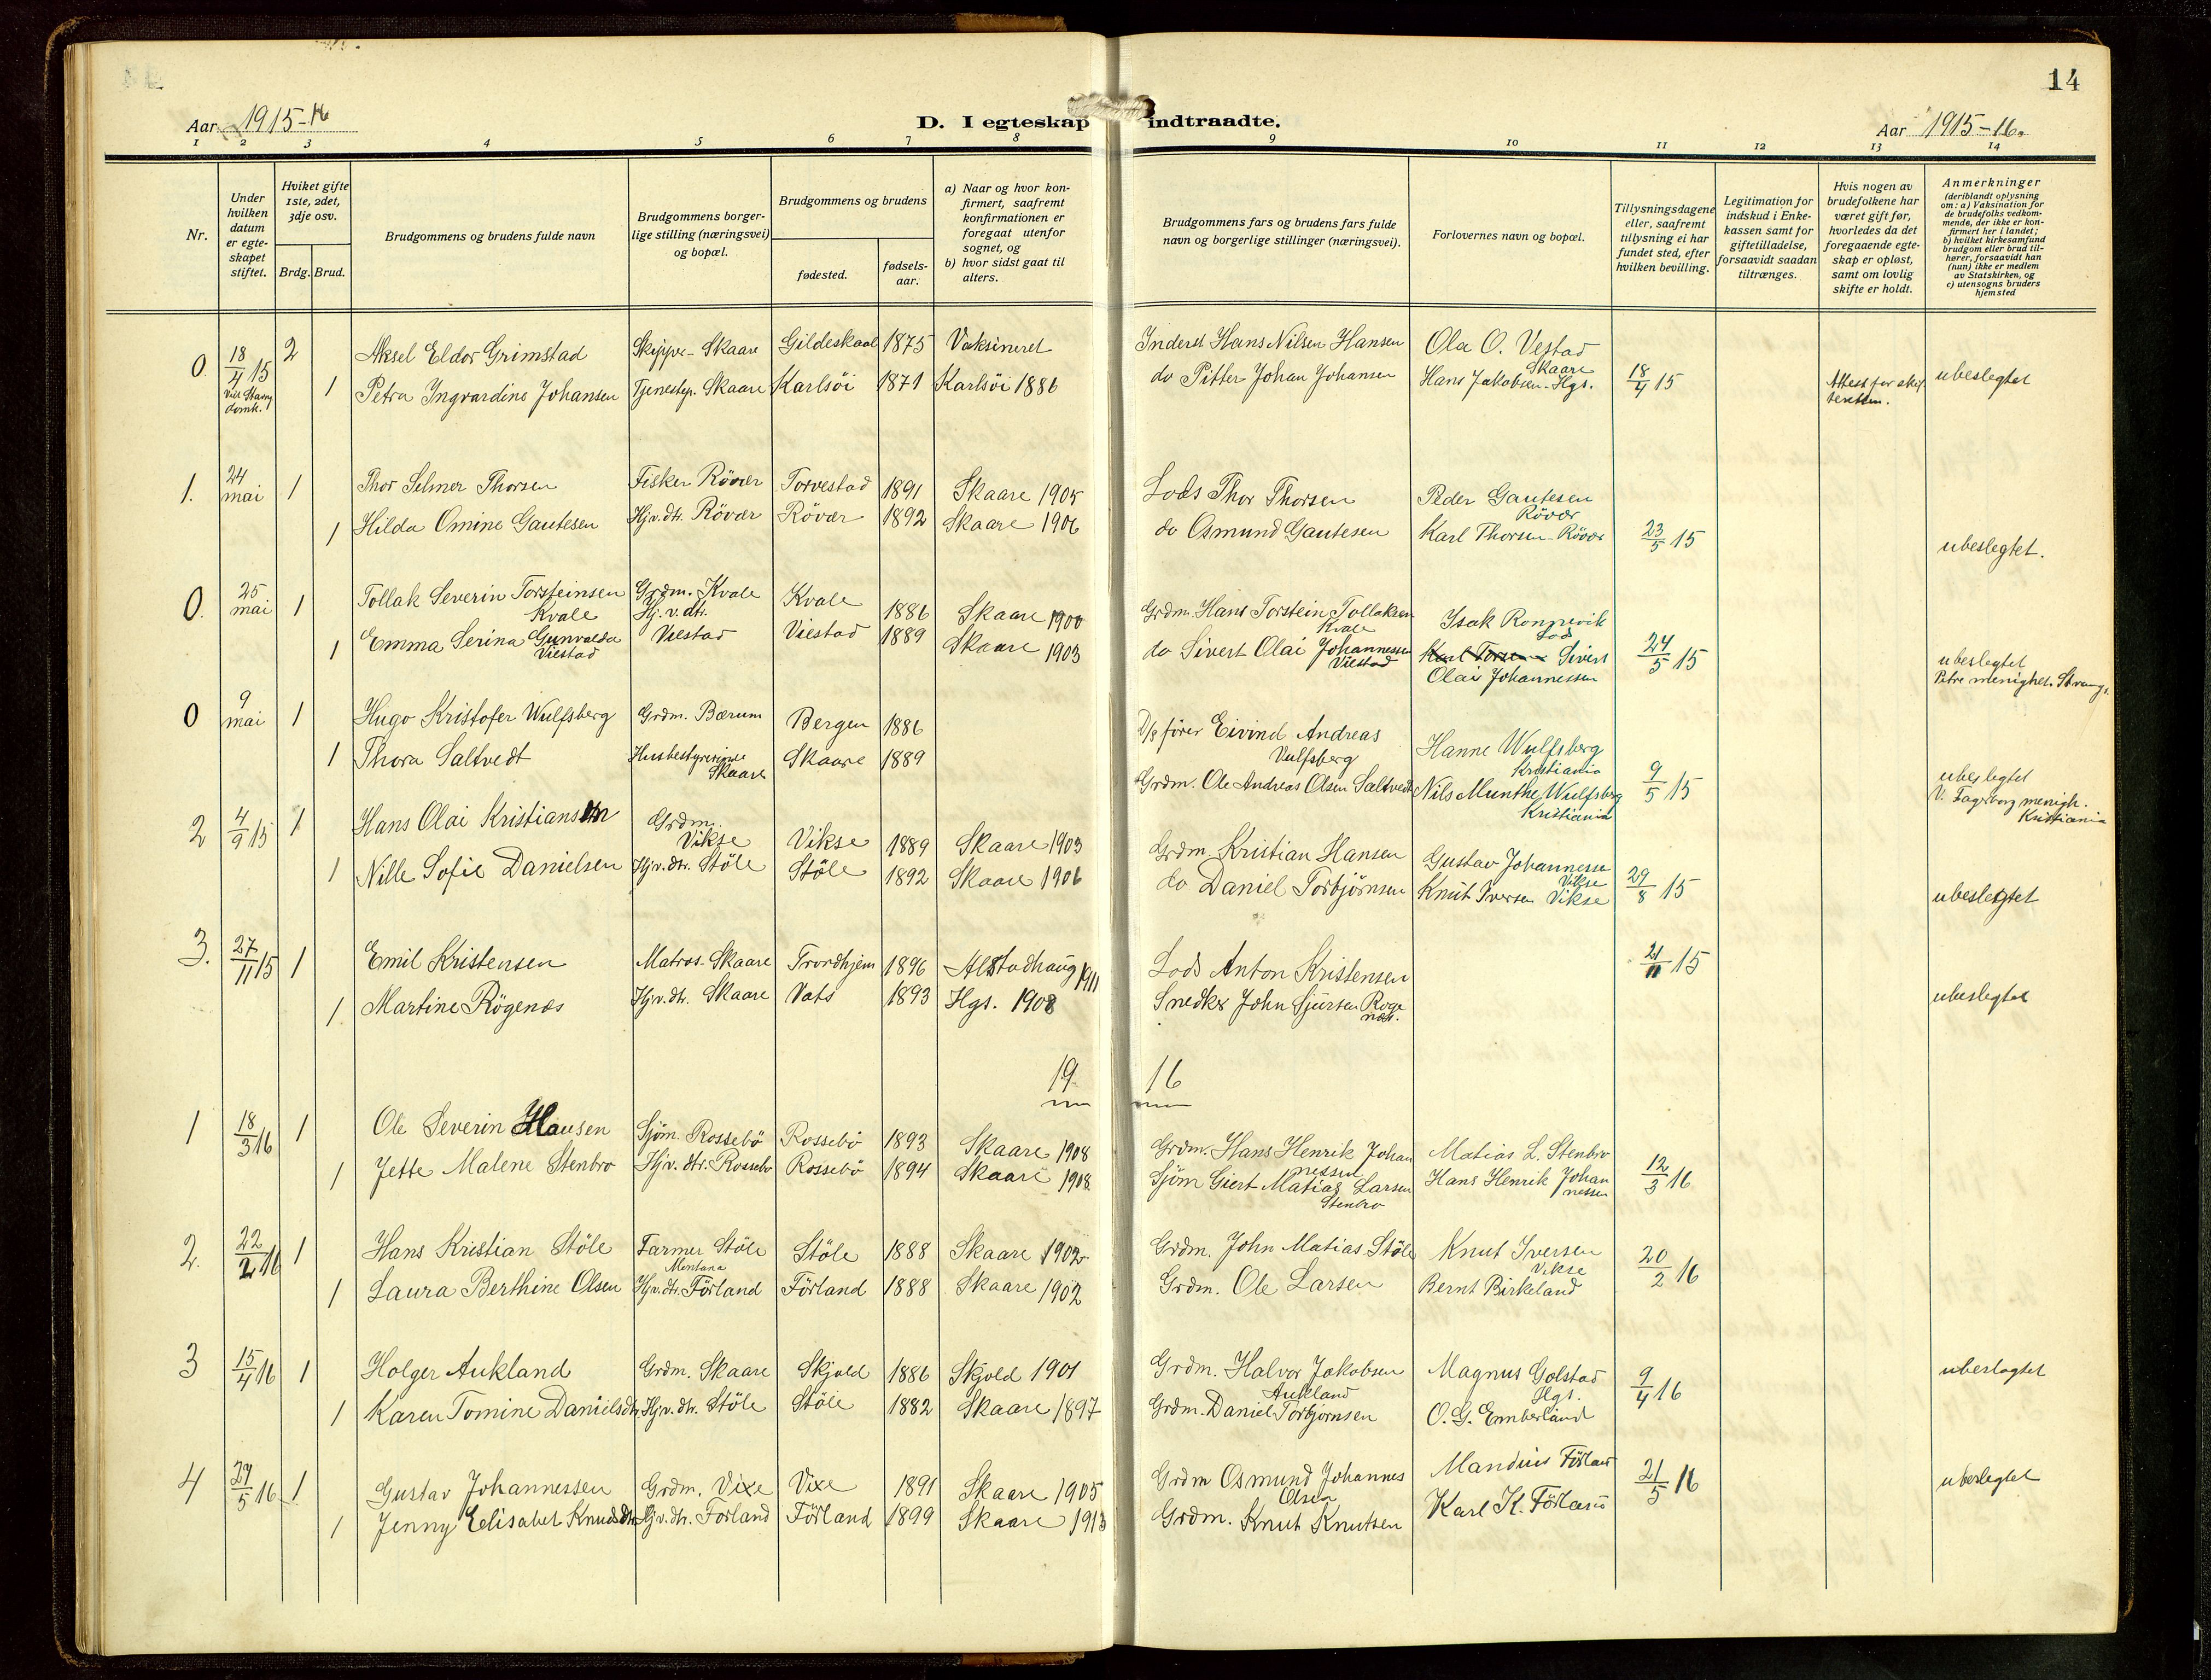 14
Aar 1915-16
D. I egteskap indtraadte.
Aar 1915-16.
1 2 3 4 5 6 7 8 9 10 11 12 13 14
Nr.
Under hvilken datum er egteskapet stiftet.
Hviket gifte 1ste, 2det, 3dje osv.
Brdg. Brud.
Brudgommens og brudens fulde navn
Brudgommens borgerlige stilling (næringsvei) og bopæl.
Brudgommens og brudens
fødested.
fødselsaar.
a) Naar og hvor konfirmert, saafremt konfirmationen er foregaat utenfor sognet, og
b) hvor sidst gaat til alters.
Brudgommens fars og brudens fars fulde navn og borgerlige stillinger (næringsvei).
Forlovernes navn og bopæl.
Tillysningsdagene eller, saafremt tillysning ei har fundet sted, efter hvilken bevilling.
Legitimation for indskud i Enkekassen samt for giftetilladelse, forsaavidt saadan tiltrænges.
Hvis nogen av brudefolkene har været gift før, hvorledes da det foregaaende egteskap er opløst, samt om lovlig skifte er holdt.
Anmerkninger (deriblandt oplysning om: a) Vaksination for de brudefolks vedkommende, der ikke er konfirmert her i landet; b) hvilket kirkesamfund brudgom eller brud tilhører, forsaavidt han (hun) ikke er medlem av Statskirken, og c) utensogns bruders hjemsted
0. 18/4 15 2 Aksel Eldor Grimstad Skipper - Skaare Gildeskaal 1875 Vaksineret Inderst Hans Nilsen Hansen Ola O. Vestad Skaare
1 Petra Ingvardine Johansen Tjenestep. Skaare Karlsöi 1871 Karlsöi 1886 do Pitter Johan Johansen Hans Jakobsen - Hgs. 18/4 15 Attest for skifteretten. ubeslegtet
1. 24 mai 1 Thor Selmer Thorsen Fisker Röver Torvestad 1891 Skaare 1905 Lods Thor Thorsen Peder Gautesen Röver
1 Hilda Omine Gautesen Hjv. dtr. Röver Röver 1892 Skaare 1906 do Osmund Gautesen Karl Thorsen - Röver 23/5 15 ubeslegtet.
0. 25 mai 1 Tollak Severin Torsteinsen Kvale Grdm. Kvale Kvale 1886 Skaare 1900 Grdm. Hans Torstein Tollaksen Kvale Isak Ronnevik
1 Emma Serina Gunvalda Viestad Hj. v. dtr. Viestad Viestad 1889 Skaare 1903 do Sivert Olai Johannessen Viestad Sivert Olai Johannessen 24/5 15 ubeslegtet Petri menighet. Stvang.
0 9 mai 1 Hugo Kristofer Wulfsberg Grdm. Bærum Bergen 1886 D/s förer Eivind Andreas Vulfsberg Hanne Wulfsberg Kristiania
1 Thora Saltvedt Husbestyrerinne Skaare Skaare 1889 Grdm. Ole Andreas Olsen Saltvedt Nils Munthe Wulfsberg Kristiania 9/5 15 ubeslegtet V. Fagerborg menigh. Kristiania
2 4/9 15 1 Hans Olai Kristiansen Grdm. Vikse Vikse 1889 Skaare 1903 Grdm. Kristian Hansen Gustav Johannessen Vikse
1 Nille Sofie Danielsen Hjv. dtr. Stöle Stöle 1892 Skaare 1906 do Daniel Torbjørnsen Knut Iversen Vikse 29/8 15 ubeslegtet
3. 27/11 15 1 Emil Kristensen Matros - Skaare Trondhjem 1896 Alstadhaug 1911 Lods Anton Kristensen 21/11 15
1 Martine Rögenes Hjv. dtr. Skaare Vats 1893 Hgs. 1908 Snedker John Sjursen Rogenæs. ubeslegtet
19 16
1 18/3 16 1 Ole Severin Hansen Sjöm. Rossebö Rossebö 1893 Skaare 1908 Grdm. Hans Henrik Johannessen Matias L. Stenbro
1 Jette Malene Stenbro Hjv. dtr. Rossebö Rossebö 1894 Skaare 1908 Sjöm Giert Matias Larsen Stenbro Hans Henrik Johannessen 12/3 16
2. 22/2 16 1 Hans Kristian Stöle Farmer Stöle Montana Stöle 1888 Skaare 1902 Grdm. John Matias Stöle Knut Iversen Vikse
1 Laura Berthine Olsen Hjv. dtr. Förland Förland 1888 Skaare 1902 Grdm. Ole Larsen Bernt Birkeland 20/2 16
3 15/4 16 1 Holger Aukland Grdm. Skaare Skjold 1886 Skjold 1901 Grdm. Halvor Jakobsen Aukland Magnus Golstad Hgs. 9/4 16 ubeslegtet
1 Karen Tomine Danielsdtr. Hjv. dtr. Stöle Stöle 1882 Skaare 1897 Grdm. Daniel Torbjørnsen O. G. Emberland
4 27/5 16 1 Gustav Johannessen Grdm. Vixe Vixe 1891 Skaare 1905 Grdm Osmund Johannes Olsen Mandius Förland 21/5 16 ubeslegtet
1 Jenny Elisabet Knudsdtr. Hjv. dtr. Förland Förland 1899 Skaare 1913 Grdm. Knut Knutsen Karl K. Förland